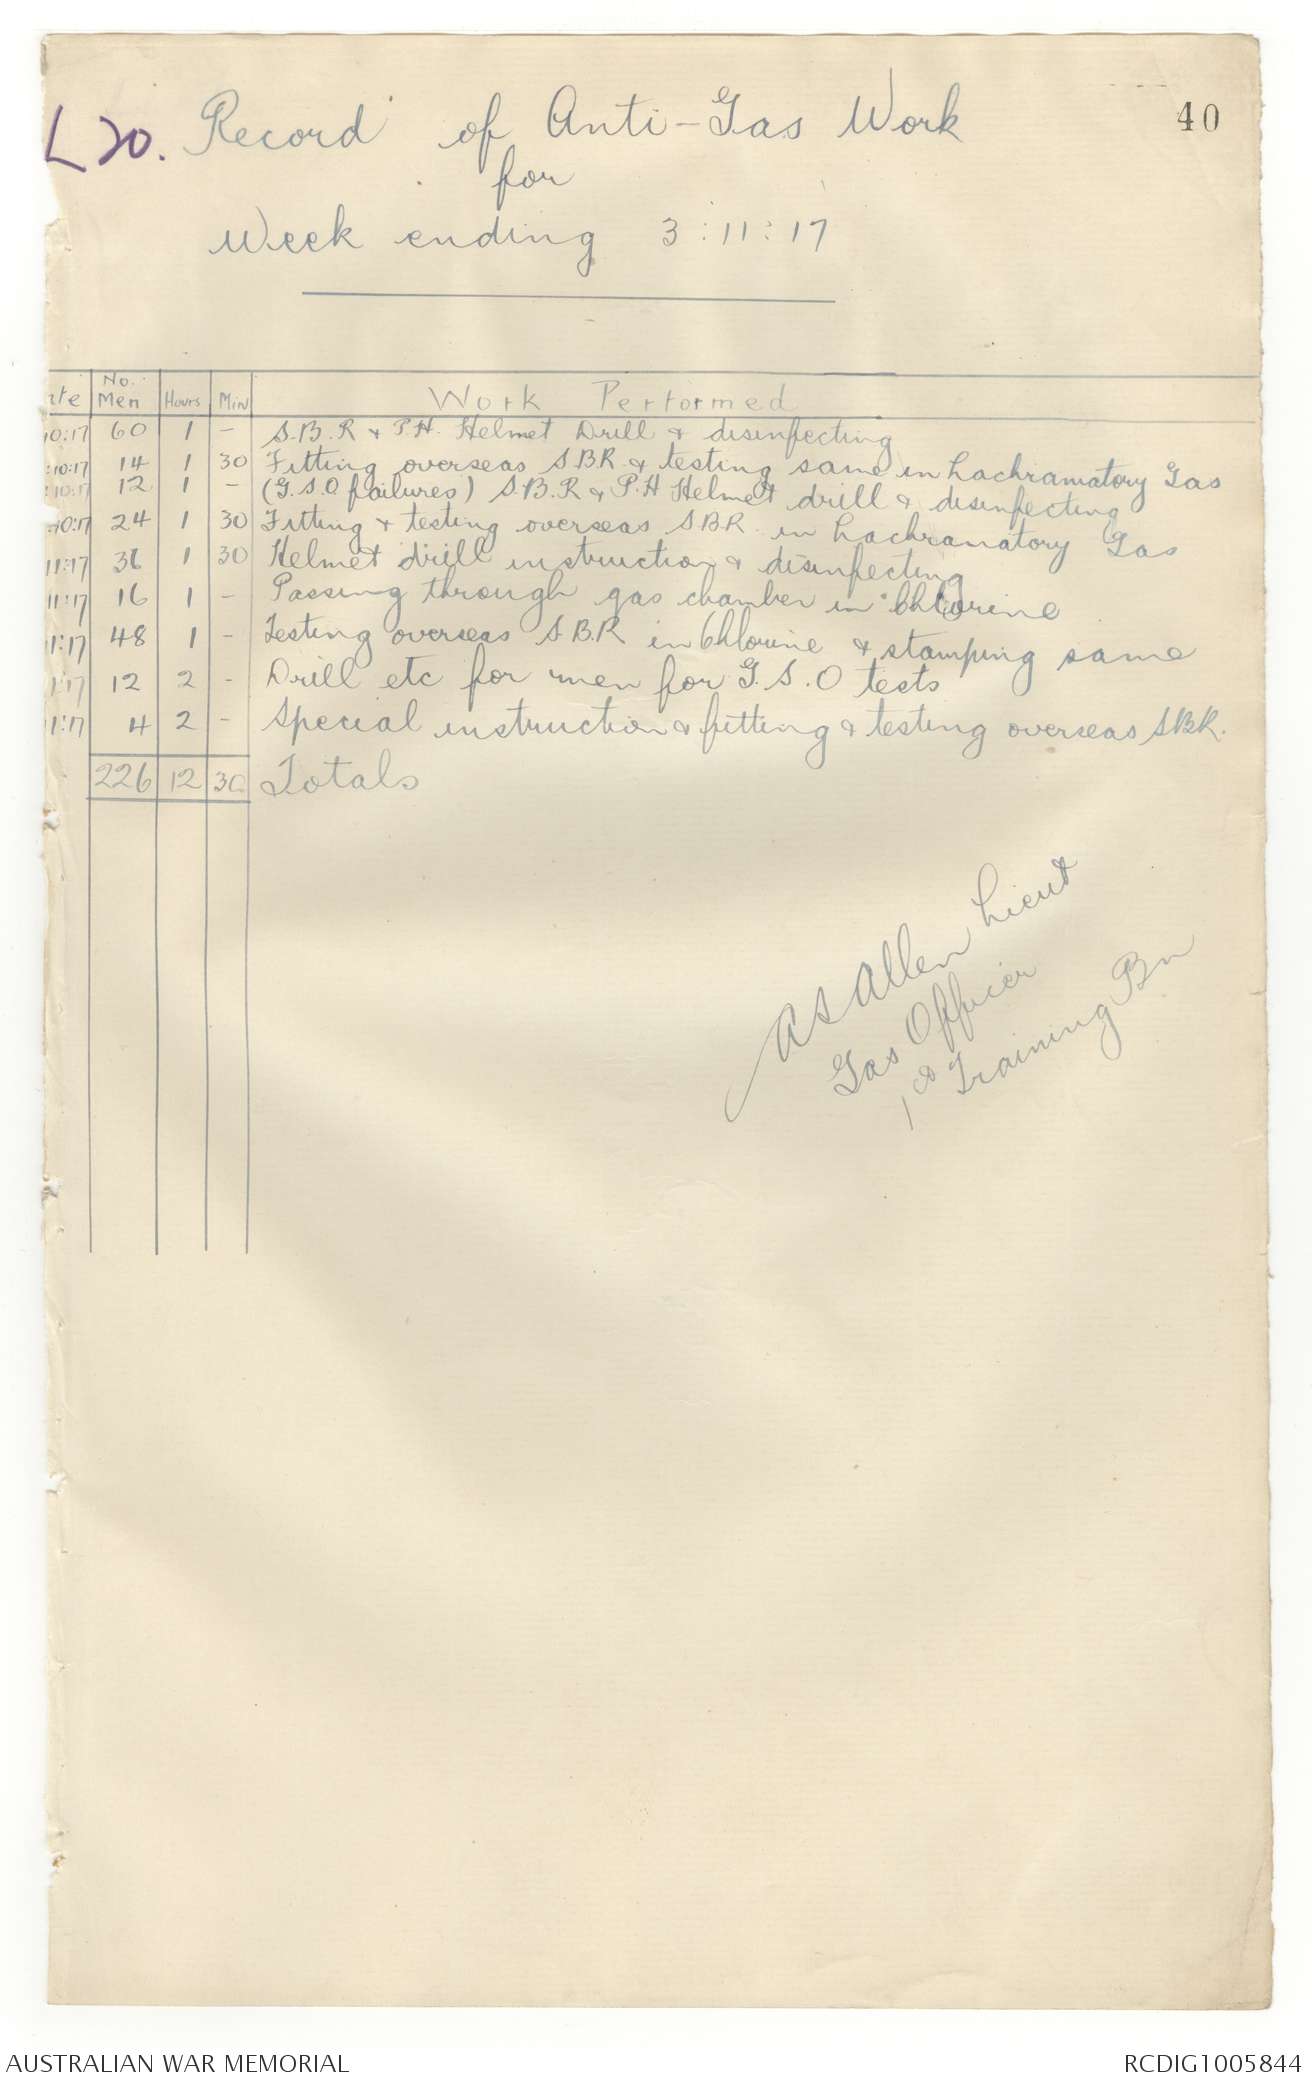 40
L 20. Record of Anti-Gas Work
for
Week ending 3:11:17
ate No. Men Hours Min Work Performed
10:17 60 1 - S.B.R & P.H. Helmet Drill & disinfecting
:10:17 14 1 30 Fitting overseas S.B.R & testing same in Lachramatory Gas
:10:17 12 1 - (G.S.O failures) S.B.R & P.H Helmet drill & disinfecting
:10:17 24 1 30 Fitting & testing overseas S.B.R. in Lachranatory Gas
11:17 36 1 30 Helmet drill instruction & disinfecting
11:17 16 1 - Passing through gas chamber in Chlorine
11:17 48 1 - Testing overseas S.B.R in Chlorine & stamping same
1:17 12 2 - Drill etc for men for G.S.O tests
11:17 4 2 - Special instruction & fitting & testing overseas S.B.R.
226 12 30 Totals
A S Allen Lieut
Gas Officer
1st Training Bn
AUSTRALIAN WAR MEMORIAL
RCDIG1005844